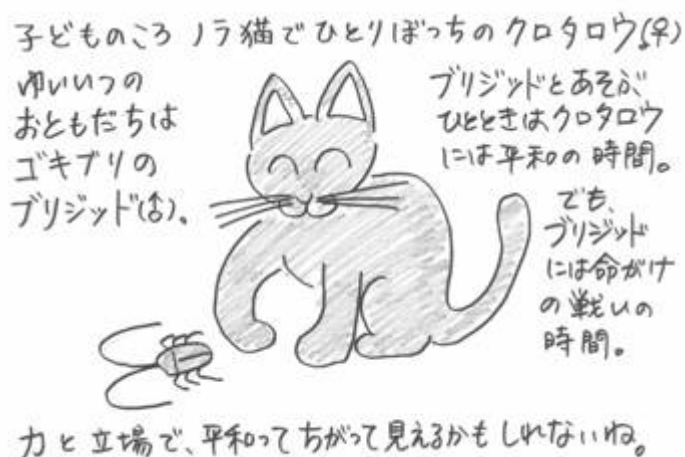 子どものころノラ猫でひとりぼっちのクロタロウ(♀)
ゆいいつの
おともだちは
ゴキブリの
ブリジッド(♂)。
ブリジッドとあそぶ
ひとときはクロタロウ
には平和の時間。
でも、
ブリジッド
には命がけ
の戦いの
時間。
力と立場で、平和ってちがって見えるかもしれないね。